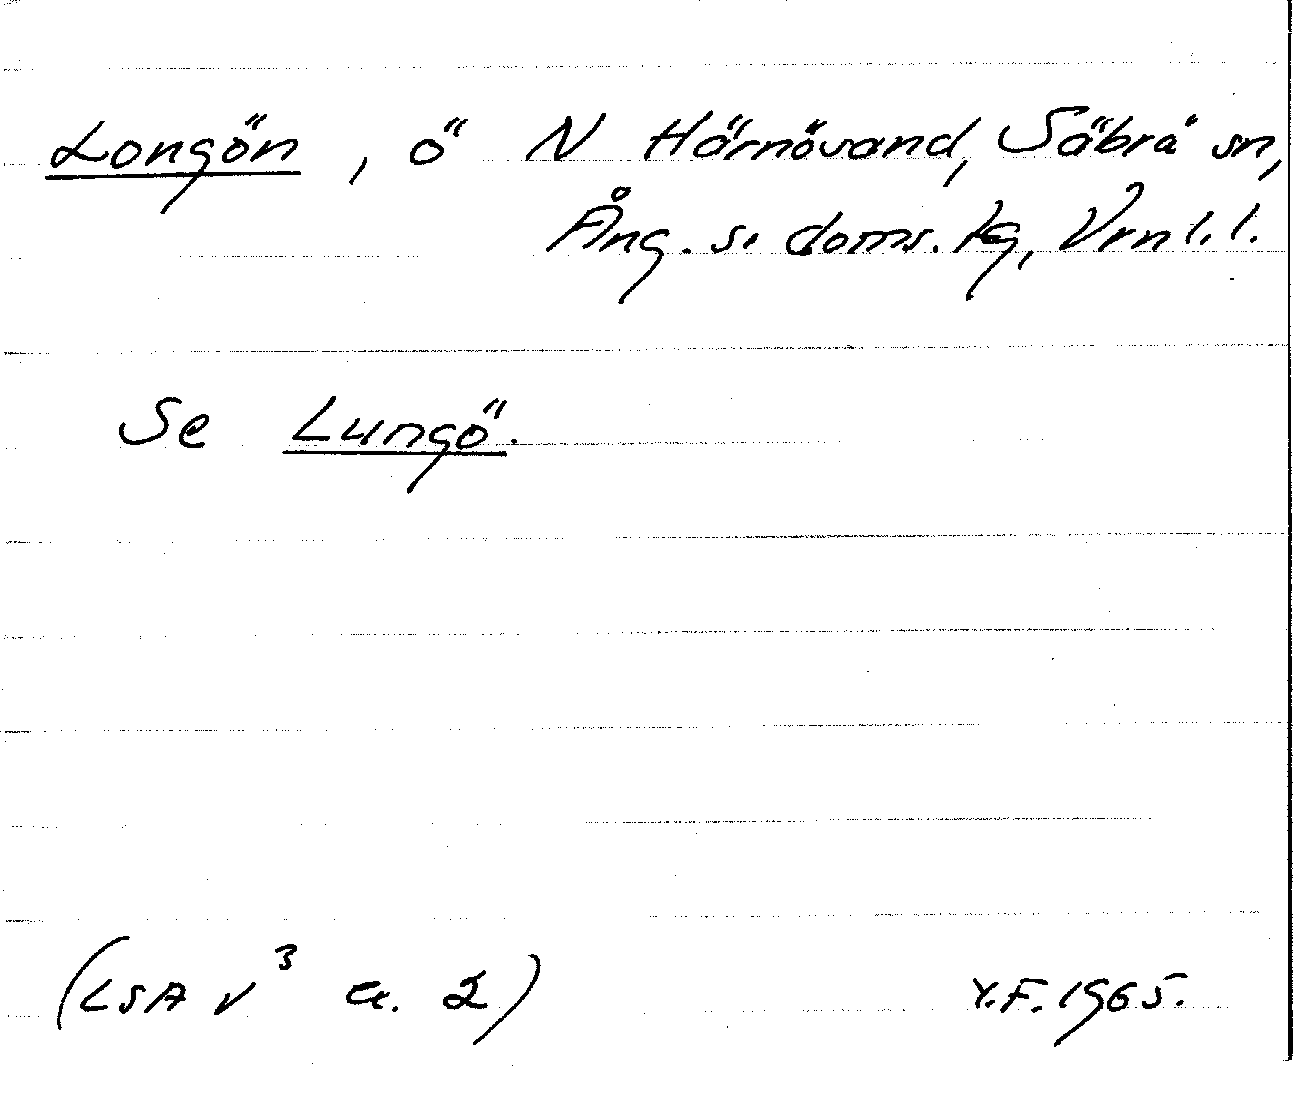 Longön, ö N Härnösand, Säbrå sn,
Ång. s. doms. tg, Vrnl. l.
Se Lungö.
(LSA V³ a. 2) Y.F. 1965.